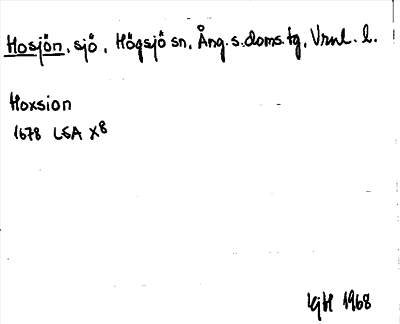 Hosjön, sjö, Högsjö sn, Ång. s. doms. tg, Vrnl. l.
Hoxsion
1678 LSA X8
KGH 1968